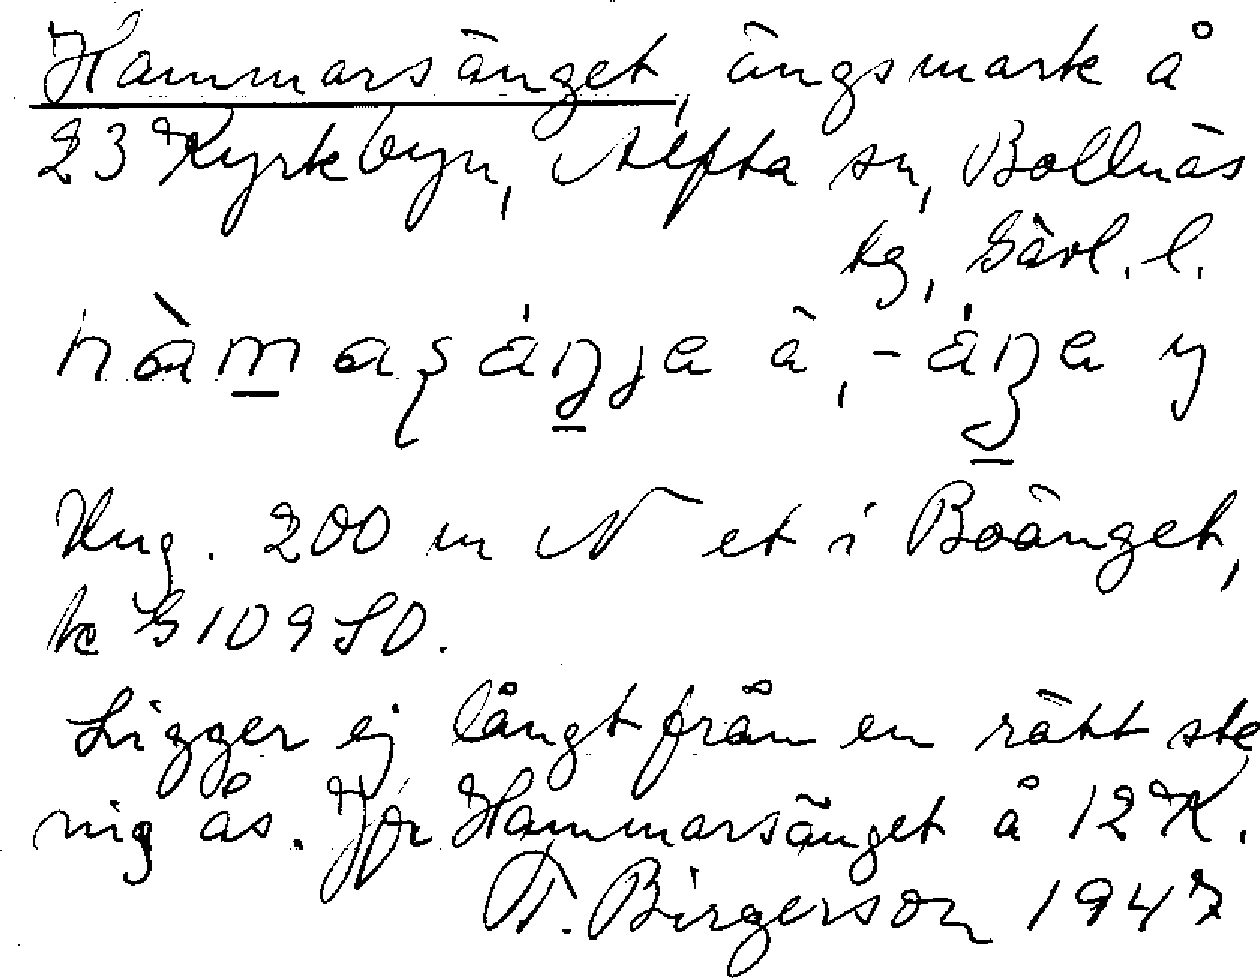 Hammarsänget, ängsmark å
23 Kyrkbyn, Alfta sn, Bollnäs
kg, Gävl. l.
hàmaʂáŋja ä, -áŋa y
Ung. 200 m N et i Boänget,
k G 109 SO.
Ligger ej långt från en rätt ste
nig ås. Jfr Hammarsänget å 12 K.
T. Birgerson 1947